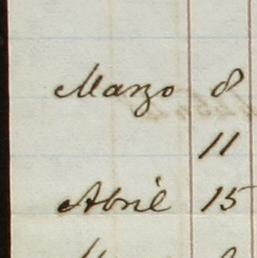 Marzo 8
11
Abril 15